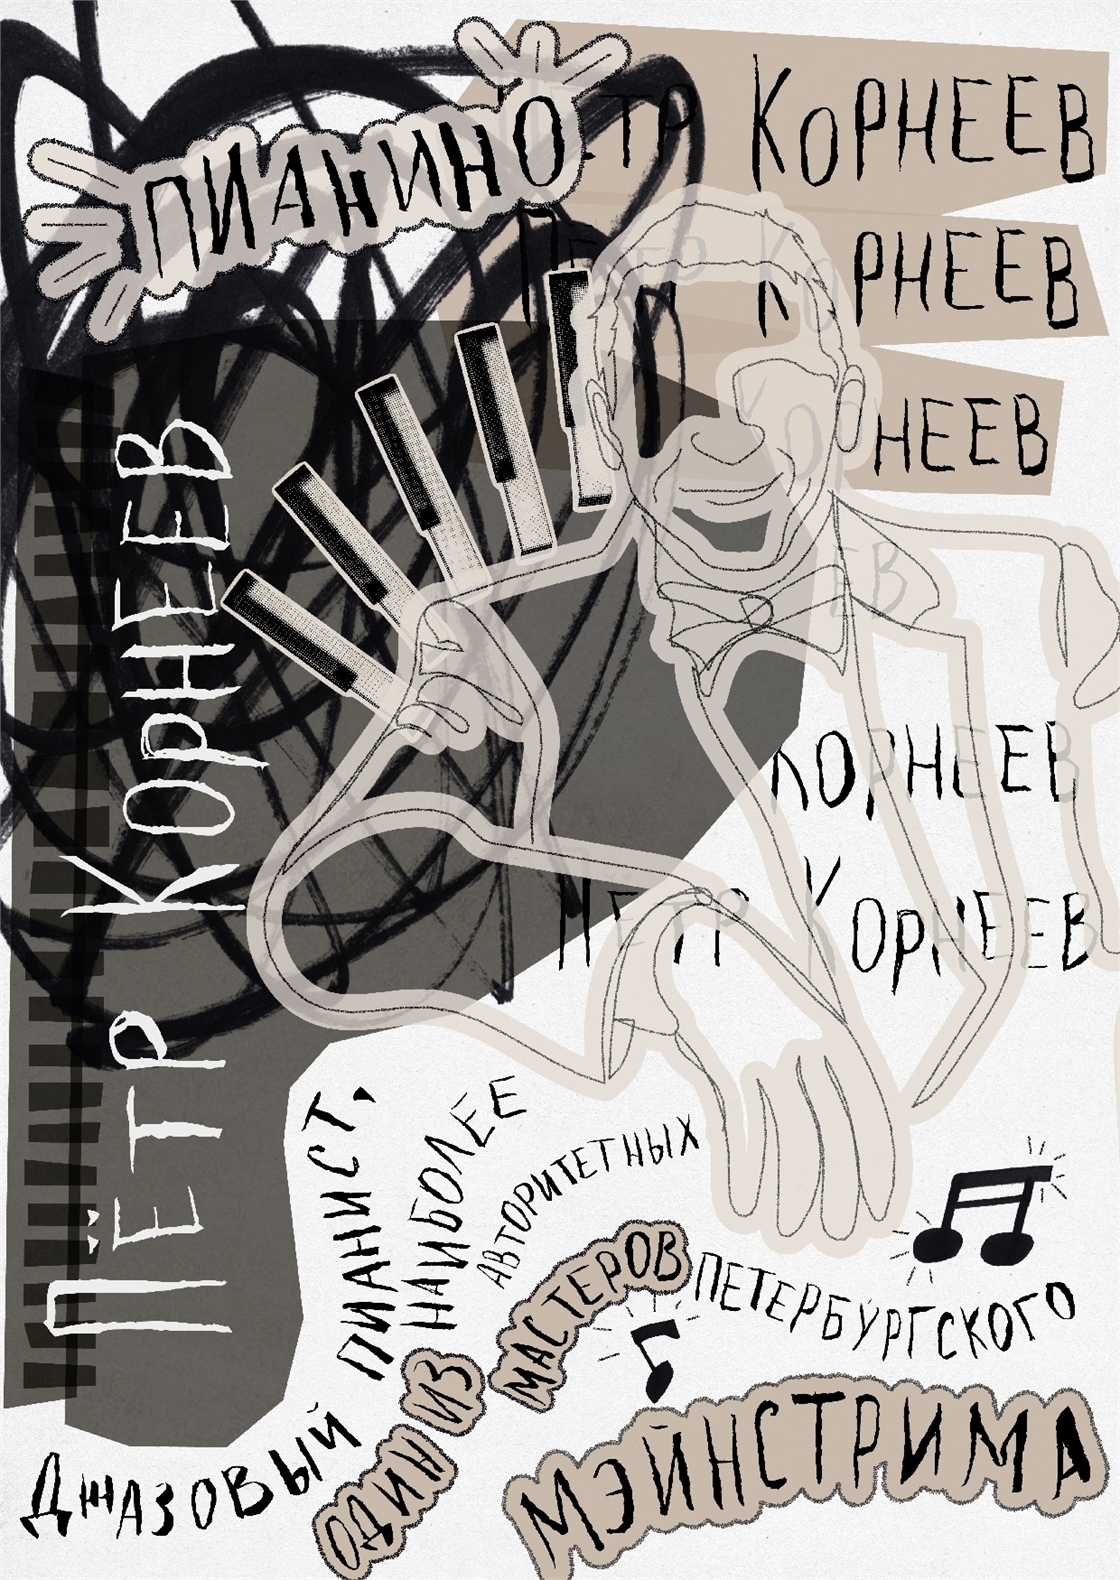 ПИАНИНО
ПЁТР КОРНЕЕВ
ПЕТР КОРНЕЕВ
КОРНЕЕВ
НЕЕВ
ЕВ
КОРНЕЕВ
ПЕТР КОРНЕЕВ
ПЁТР КОРНЕЕВ
ДЖАЗОВЫЙ
ПИАНИСТ,
ОДИН ИЗ
НАИБОЛЕЕ
АВТОРИТЕТНЫХ
МАСТЕРОВ
ПЕТЕРБУРГСКОГО
МЭЙНСТРИМА